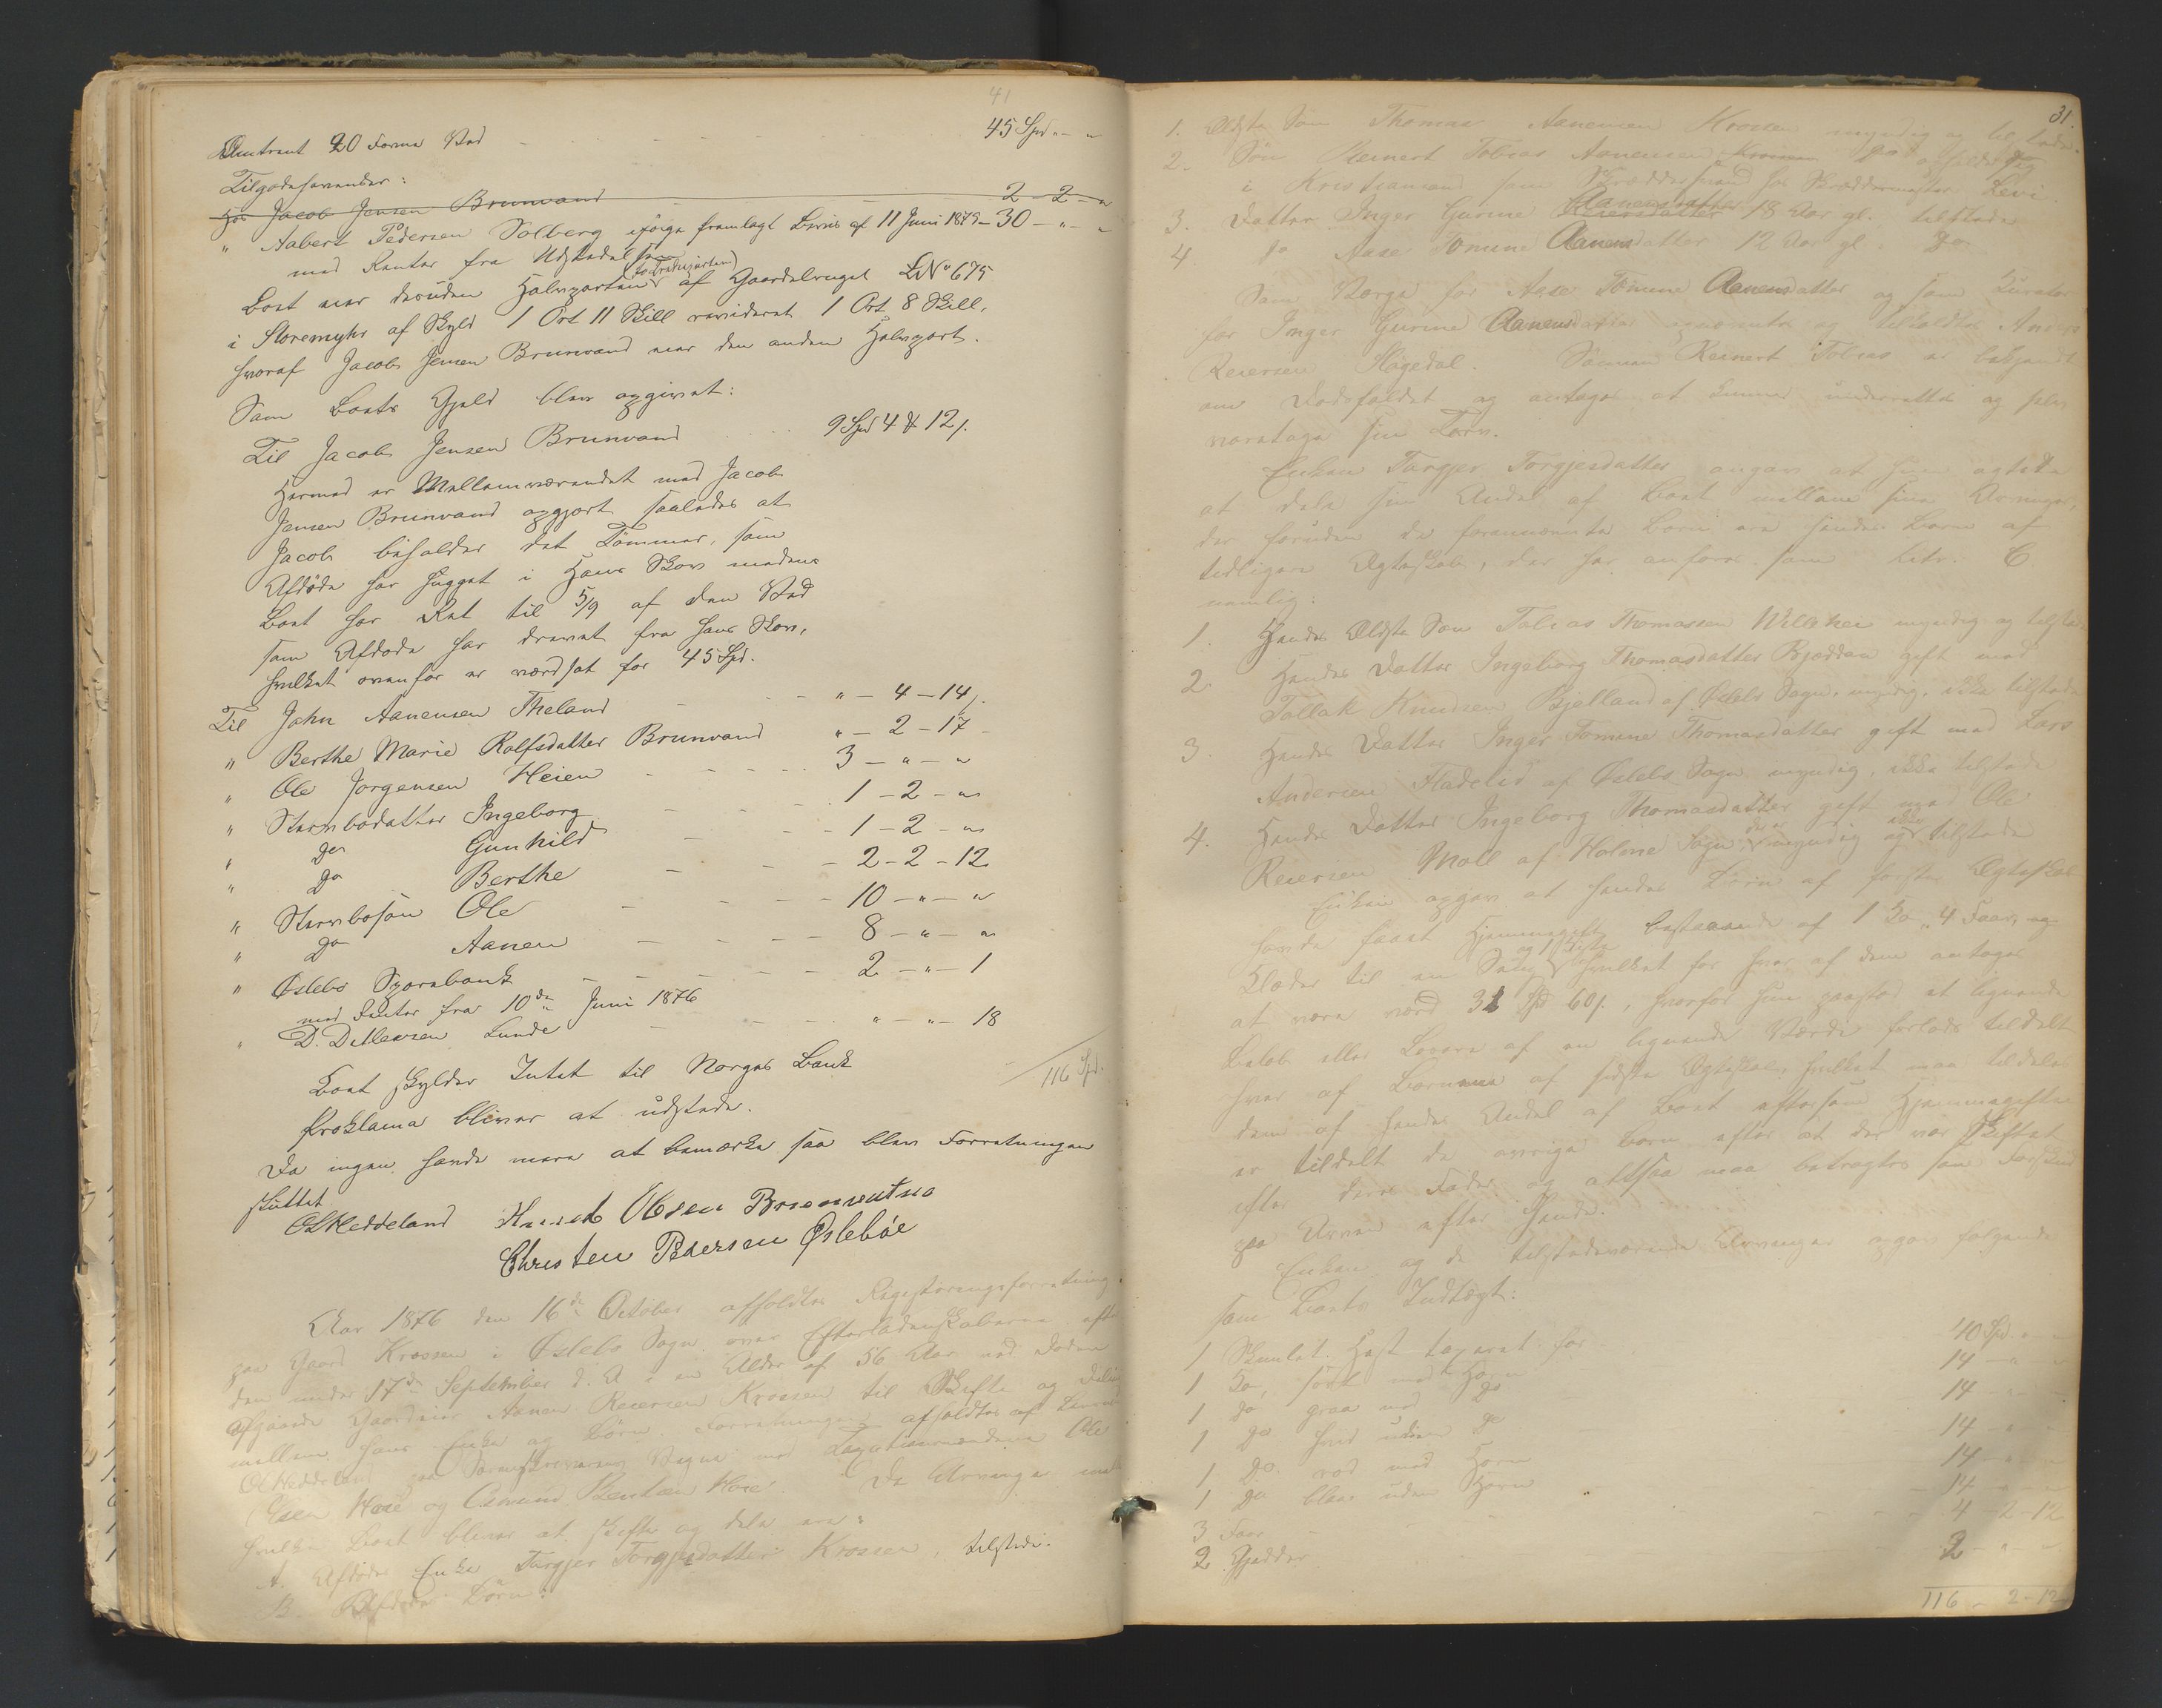 41
Omtrent 20 Favne Ved - - - 45 Spd " - "
Tilgodehavender:
Hos Jacob Jensen Brunvand 2 - 2 - "
" Aabert Pedersen Solberg ifølge fremlagt Bevis af 11 Juni 1875 - 30 - " - "
med Renter fra Udstedelsen
Boet eier desuden Halvparten af Gaardsbruget LNo 675
i Storemyhr af Skyld 1 Ort 11 Skill revideret 1 Ort 8 Skill,
hvoraf Jacob Jensen Brunvand eier den anden Halvpart.
Som Boets Gjeld blev opgivet:
Til Jacob Jensen Brunvand 9 Spd 4 12
Hermed er Mellemværendet med Jacob
Jensen Brunvand opgjort saaledes at
Jacob beholder det Tømmer, som
Afdøde har hugget i Hans Skov medens
Boet har Ret til 5/9 af den Ved
som Afdøde har drevet fra hans Skov,
hvilket ovenfor er værdsat for 45 Spd.
Til John Aanensen Theland " - 4 - 14
" Berthe Marie Rolfsdatter Brunvand " - 2 - 17
" Ole Jørgensen Heien 3 - " - "
" Stervbodatter Ingeborg 1 - 2 - "
" do Gunhild 1 - 2 - "
" do Berthe 2 - 2 - 12
" Stervbosøn Ole 10 - " - "
" do Aanen 8 - " - "
" Øslebø Sparebank 2 - " - 1
med Renter fra 10de Juni 1876
" D. Detlevsen Lunde " - " - 18
Boet skylder Intet til Norges Bank
116 Spd.
Proklama bliver at udstede.
Da ingen havde mere at bemærke saa blev Forretningen
sluttet
Heddeland Olsen
Christen Pedersen Øslebøe
Aar 1876 den 16de October afholdtes Registreringsforretning
paa Gaard Krossen i Øslebø Sogn over Efterladenskaberne efter
den under 17de September d. A. i en Alder af 56 Aar ved Døden
afgaaede Gaardeier Aanen Reiersen Krossen til Skifte og Deling
mellem hans Enke og Børn. Forretningen afholdtes af Lensmand
Heddeland paa Sorenskriverens Vegne med Laugrettesmændene Ole
Olsen Hoie og Osmund Bentsen Hoie. De Arvinger mellem
hvilke Boet bliver at skifte og dele ere:
A. Afdødes Enke Torgjer Torgjesdatter Krossen, tilstede.
B. Afdødes Børn:
31.
1. Ældste Søn Thomas Aanensen Krossen myndig og tilstede.
2. Søn Reinert Tobias Aanensen opholder sig
i Kristiansand som Skræddersvend hos Skræddermester Levi.
3. Datter Inger Gurine Aanensdatter 18 Aar gl. tilstede
4. do Aase Tomine Aanensdatter 12 Aar gl. do
Som Værge for Aase Tomine Aanensdatter og som Kurator
for Inger Gurine Aanensdatter og tilkaldtes Anders
Reiersen Hagedal. Sønnen Reinert Tobias er bekjendt
om Dødsfaldet og antages at kunne underrettes og selv
varetage sin Tarv.
Enken Torgjer Torgjesdatter angav at hun agtede
at dele sin Andel af Boet mellem sine Arvinger,
der foruden de forannævnte Børn ere hendes Børn af
tidligere Ægteskab, der her anføres som Litr. C
nemlig:
1. Hendes Ældste Søn Tobias Thomassen myndig og tilstede
2. Hendes Datter Ingeborg Thomasdatter gift med
Tollak Knudsen Bjelland af Øslebø Sogn, myndig, ikke tilstede
3 Hendes Datter Inger Tomine Thomasdatter gift med Lars
Andersen Fladelid af Øslebø Sogn myndig, ikke tilstede
4. Hendes Datter Ingeborg Thomasdatter gift med Ole
Reiersen Moll af Holme Sogn der er myndig og ikke tilstede
Enken opgav at hendes Børn af første Ægteskab
havde faaet Hjemmegift bestaaende af 1 Ko, 4 Faar, og
Klæder til en Seng og 1 Kiste hvilket for hver af dem antoges
at være værd 31 Spd 60, hvorfor hun paastod et lignende
Beløb eller Løsøre af en lignende Værdi forlods tildelt
hver af Børnene af sidste Ægteskab, hvilket maa tildeles
dem af hendes Andel af Boet eftersom Hjemmegiften
er tildelt de øvrige Børn efter at der var skiftet
efter deres Fader og altsaa maa betragtes som Forskud
paa Arven efter hende.
Enken og de tilstedeværende Arvinger opgav følgende
som Boets Indtægt:
1 Hest taxeret for 40 Spd " - "
1 Ko, sort med Horn 14 - " - "
1 do graa med do 14 - " - "
1 do hvid uden do 14 - " - "
1 do rød med Horn 14 - " - "
1 do blaa uden Horn 14 - " - "
3 Faar 4 - 2 - 12
2 Gjedder 2 - " - "
116 - 2 - 12